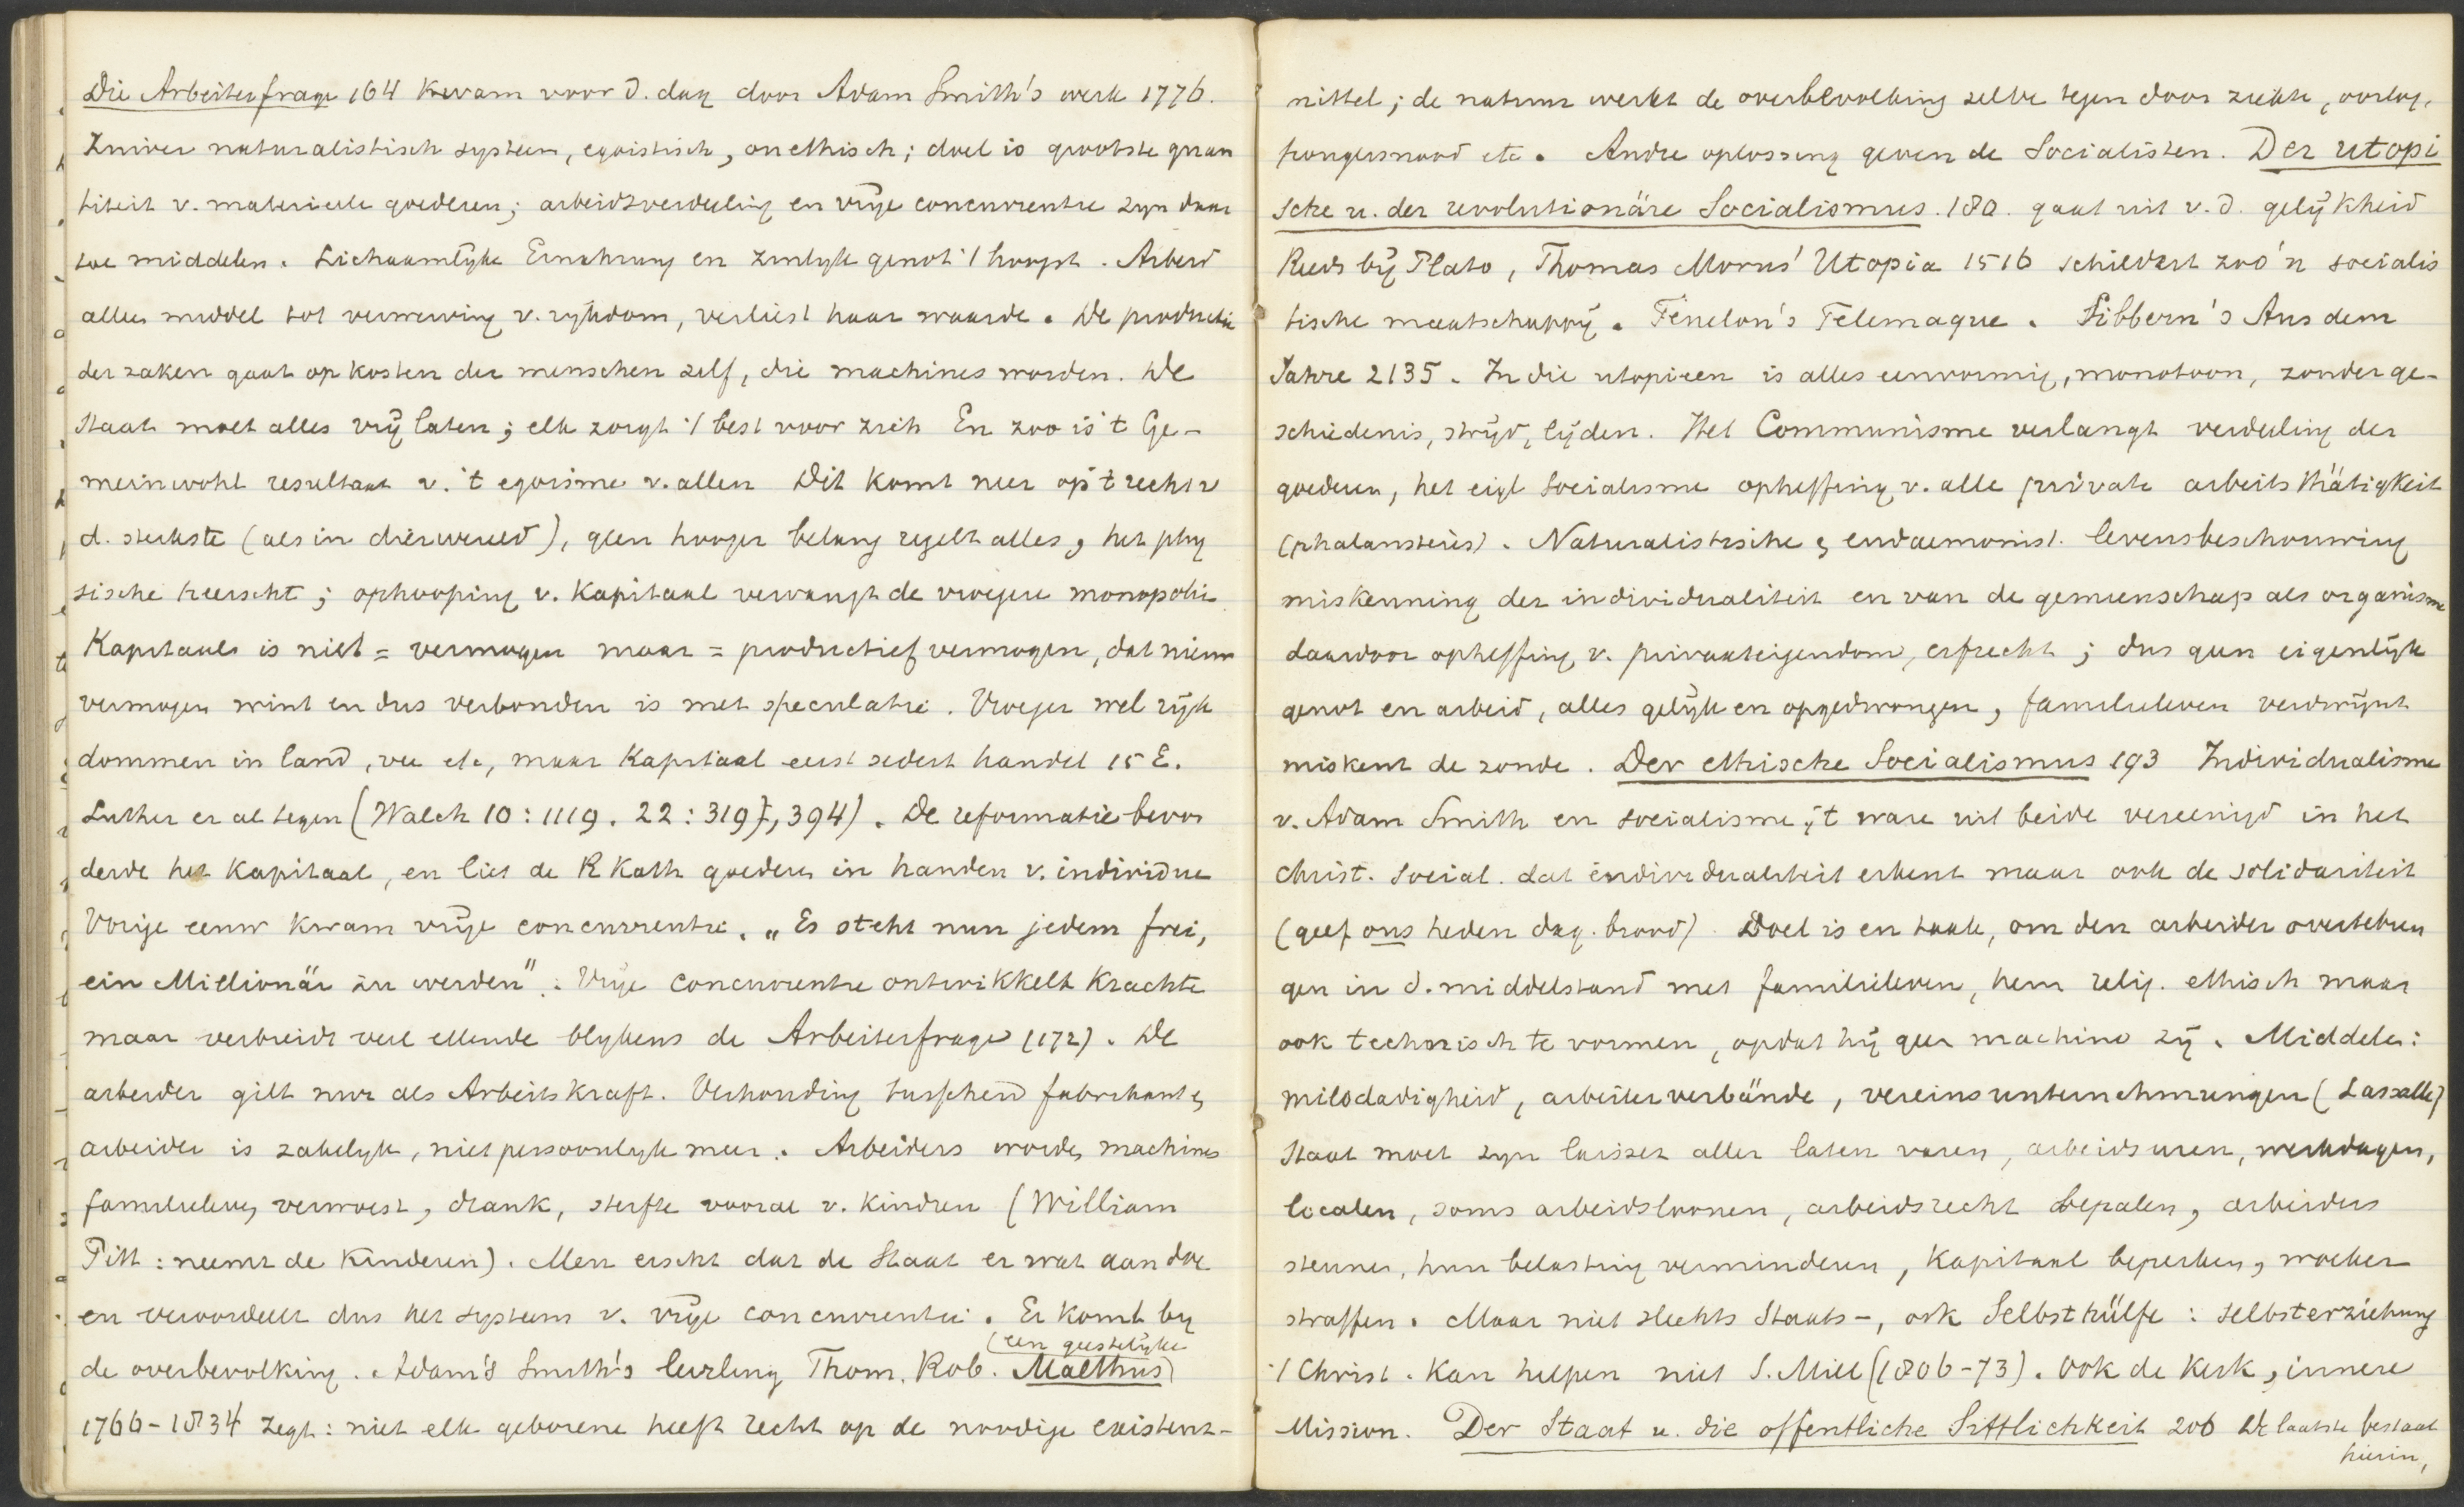 Die Arbeiterfrage 164 kwam voor d. dag door Adam Smith's werk 1776.
Zuiver naturalistisch systeem, egoistisch, onethisch; doel is grootste quan
titeit v. materieele goederen; arbeidsverdeeling en vrije concurrentie zyn daar
toe middelen. Lichaamlyke Ernahrung en zinlyk genot 't hoogst. Arbeid
alleen middel tot verwerving v. rykdom, verliest haar waarde. De productie
der zaken gaat op kosten der menschen zelf, die machines worden. De
Staat moet alles vrij laten; elk zorgt 't best voor zich En zoo is 't Ge-
meinwohl resultaat v. 't egoisme v. allen Dit komt neer op 't recht v
d. sterkste (als in dierwereld), geen hooger belang regelt alles, het phy
sische heerscht; ophooping v. Kapitaal vervangt de vroegere monopolie.
Kapitaal is niet = vermogen maar = productief vermogen, dat nieuw
vermogen wint en dus verbonden is met speculatie. Vroeger wel ryk
dommen in land, vee etc, maar Kapitaal eerst sedert handel 15 E.
Luther er al tegen (Walch 10:1119. 22:319, 394). De reformatie bevor
derde het Kapitaal, en liet de R Kath goederen in handen v. individue
Vorige eeuw kwam vrije concurrentie. „Es steht nun jedem frei,
ein Millionär zu werden". Vrije concurrentie ontwikkelt krachte
maar verbreidt veel ellende blykens de Arbeiterfrage (172). De
arbeider gilt nur als Arbeitskraft. Verhouding tusschen fabrikant &
arbeider is zakelyk, niet persoonlyk meer. Arbeiders worden machines
familieleven verwoest, drank, sterfte vooral v. kindren (William
Pitt: neemt de kinderen). Men eischt dat de Staat er wat aan doe
en veroordeelt dus het systeem v. vrije concurrentie. Er komt by
de overbevolking. Adam's Smith's leerling Thom. Rob. Malthus (een geestelijke)
1766-1834 zegt: niet elk geborene heeft recht op de noodige existenz-
mittel; de natuur werkt de overbevolking zelve tegen door ziekte, oorlog,
hongersnood etc. Andre oplossing geven de Socialisten. Der utopi
sche u. der revolutionäre Socialismus. 180. gaat uit v. d. gelijkheid
Reeds bij Plato, Thomas Morus' Utopia 1516 schildert zoo'n socialis
tische maatschappij. Fénelon's Telemaque. Sibbern's Aus dem
Jahre 2135. In die utopieen is alles eenvormig, monotoon, zonder ge-
schiedenis, strijd, lijden. Het Communisme verlangt verdeeling der
goederen, het eigl Socialisme opheffing v. alle private arbeitsthätigkeit
(phalansteries). Naturalistische & eudaemonist. levensbeschouwing
miskenning der individualiteit en van de gemeenschap als organisme
daardoor opheffing v. privaateigendom, erfrecht; dus geen eigenlijk
genot en arbeid, alles gelijk en opgedwongen, familieleven verdwijnt
miskent de zonde. Der ethische Socialismus 193 Individualisme
v. Adam Smith en socialisme, 't ware uit beide vereenigd in het
christ. social. dat individualiteit erkent maar ook de solidariteit
(geef ons heden dag. brood). Doel is en taak, om den arbeider overtebren
gen in d. middelstand met familieleven, hem relig. ethisch maar
ook technisch te vormen, opdat hij geen machine zij. Middelen:
milddadigheid, arbeiterverbände, vereinsunternehmungen (Lassalle)
Staat moet zyn laissez aller laten varen, arbeidsuren, werkdagen,
localen, soms arbeidsloonen, arbeidsrecht bepalen, arbeiders
steunen, hun belasting verminderen, Kapitaal beperken, woeker
straffen. Maar niet slechts Staats-, ook Selbsthülfe: selbsterziehung
't Christ. kan helpen niet S. Mill (1806-73). Ook de Kerk, innere
Mission. Der Staat u. die offentliche Sittlichkeit 206 De laatste bestaat
hierin,